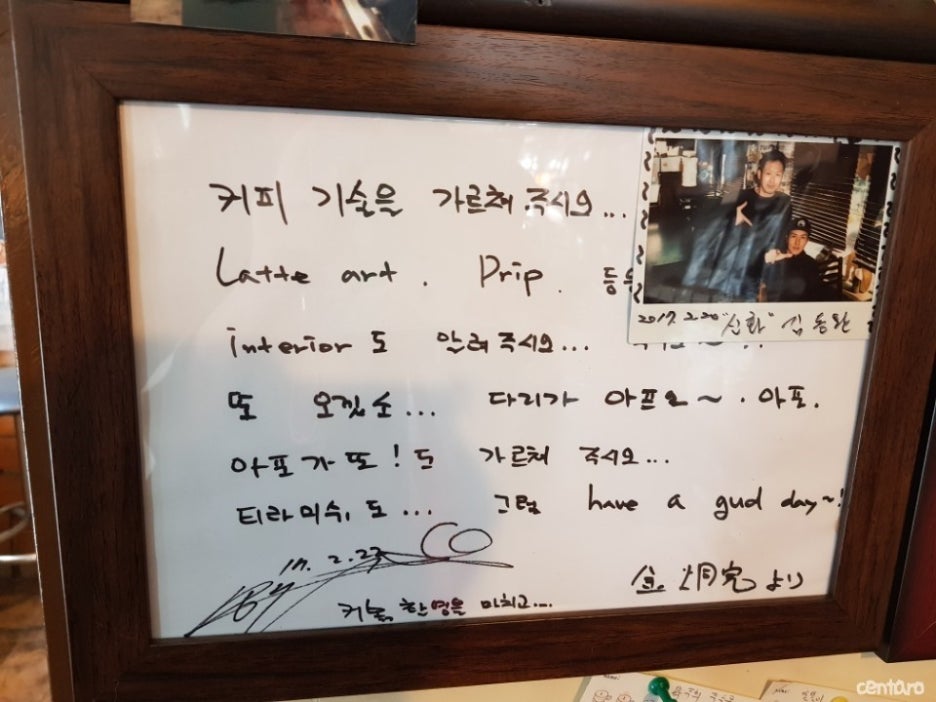 커피 기술을 가르쳐 주시오...
Latte art. Drip. 등을
2017. 2.20 "신화" 김동완
interior도 알려주시오...
또 오겠소... 다리가 아프오~. 아포.
아포가또! 도 가르쳐 주시오...
티라미수,도... 그럼 have a gud day~!
17. 2. 27
金 炯完 より
마치고...
centaro